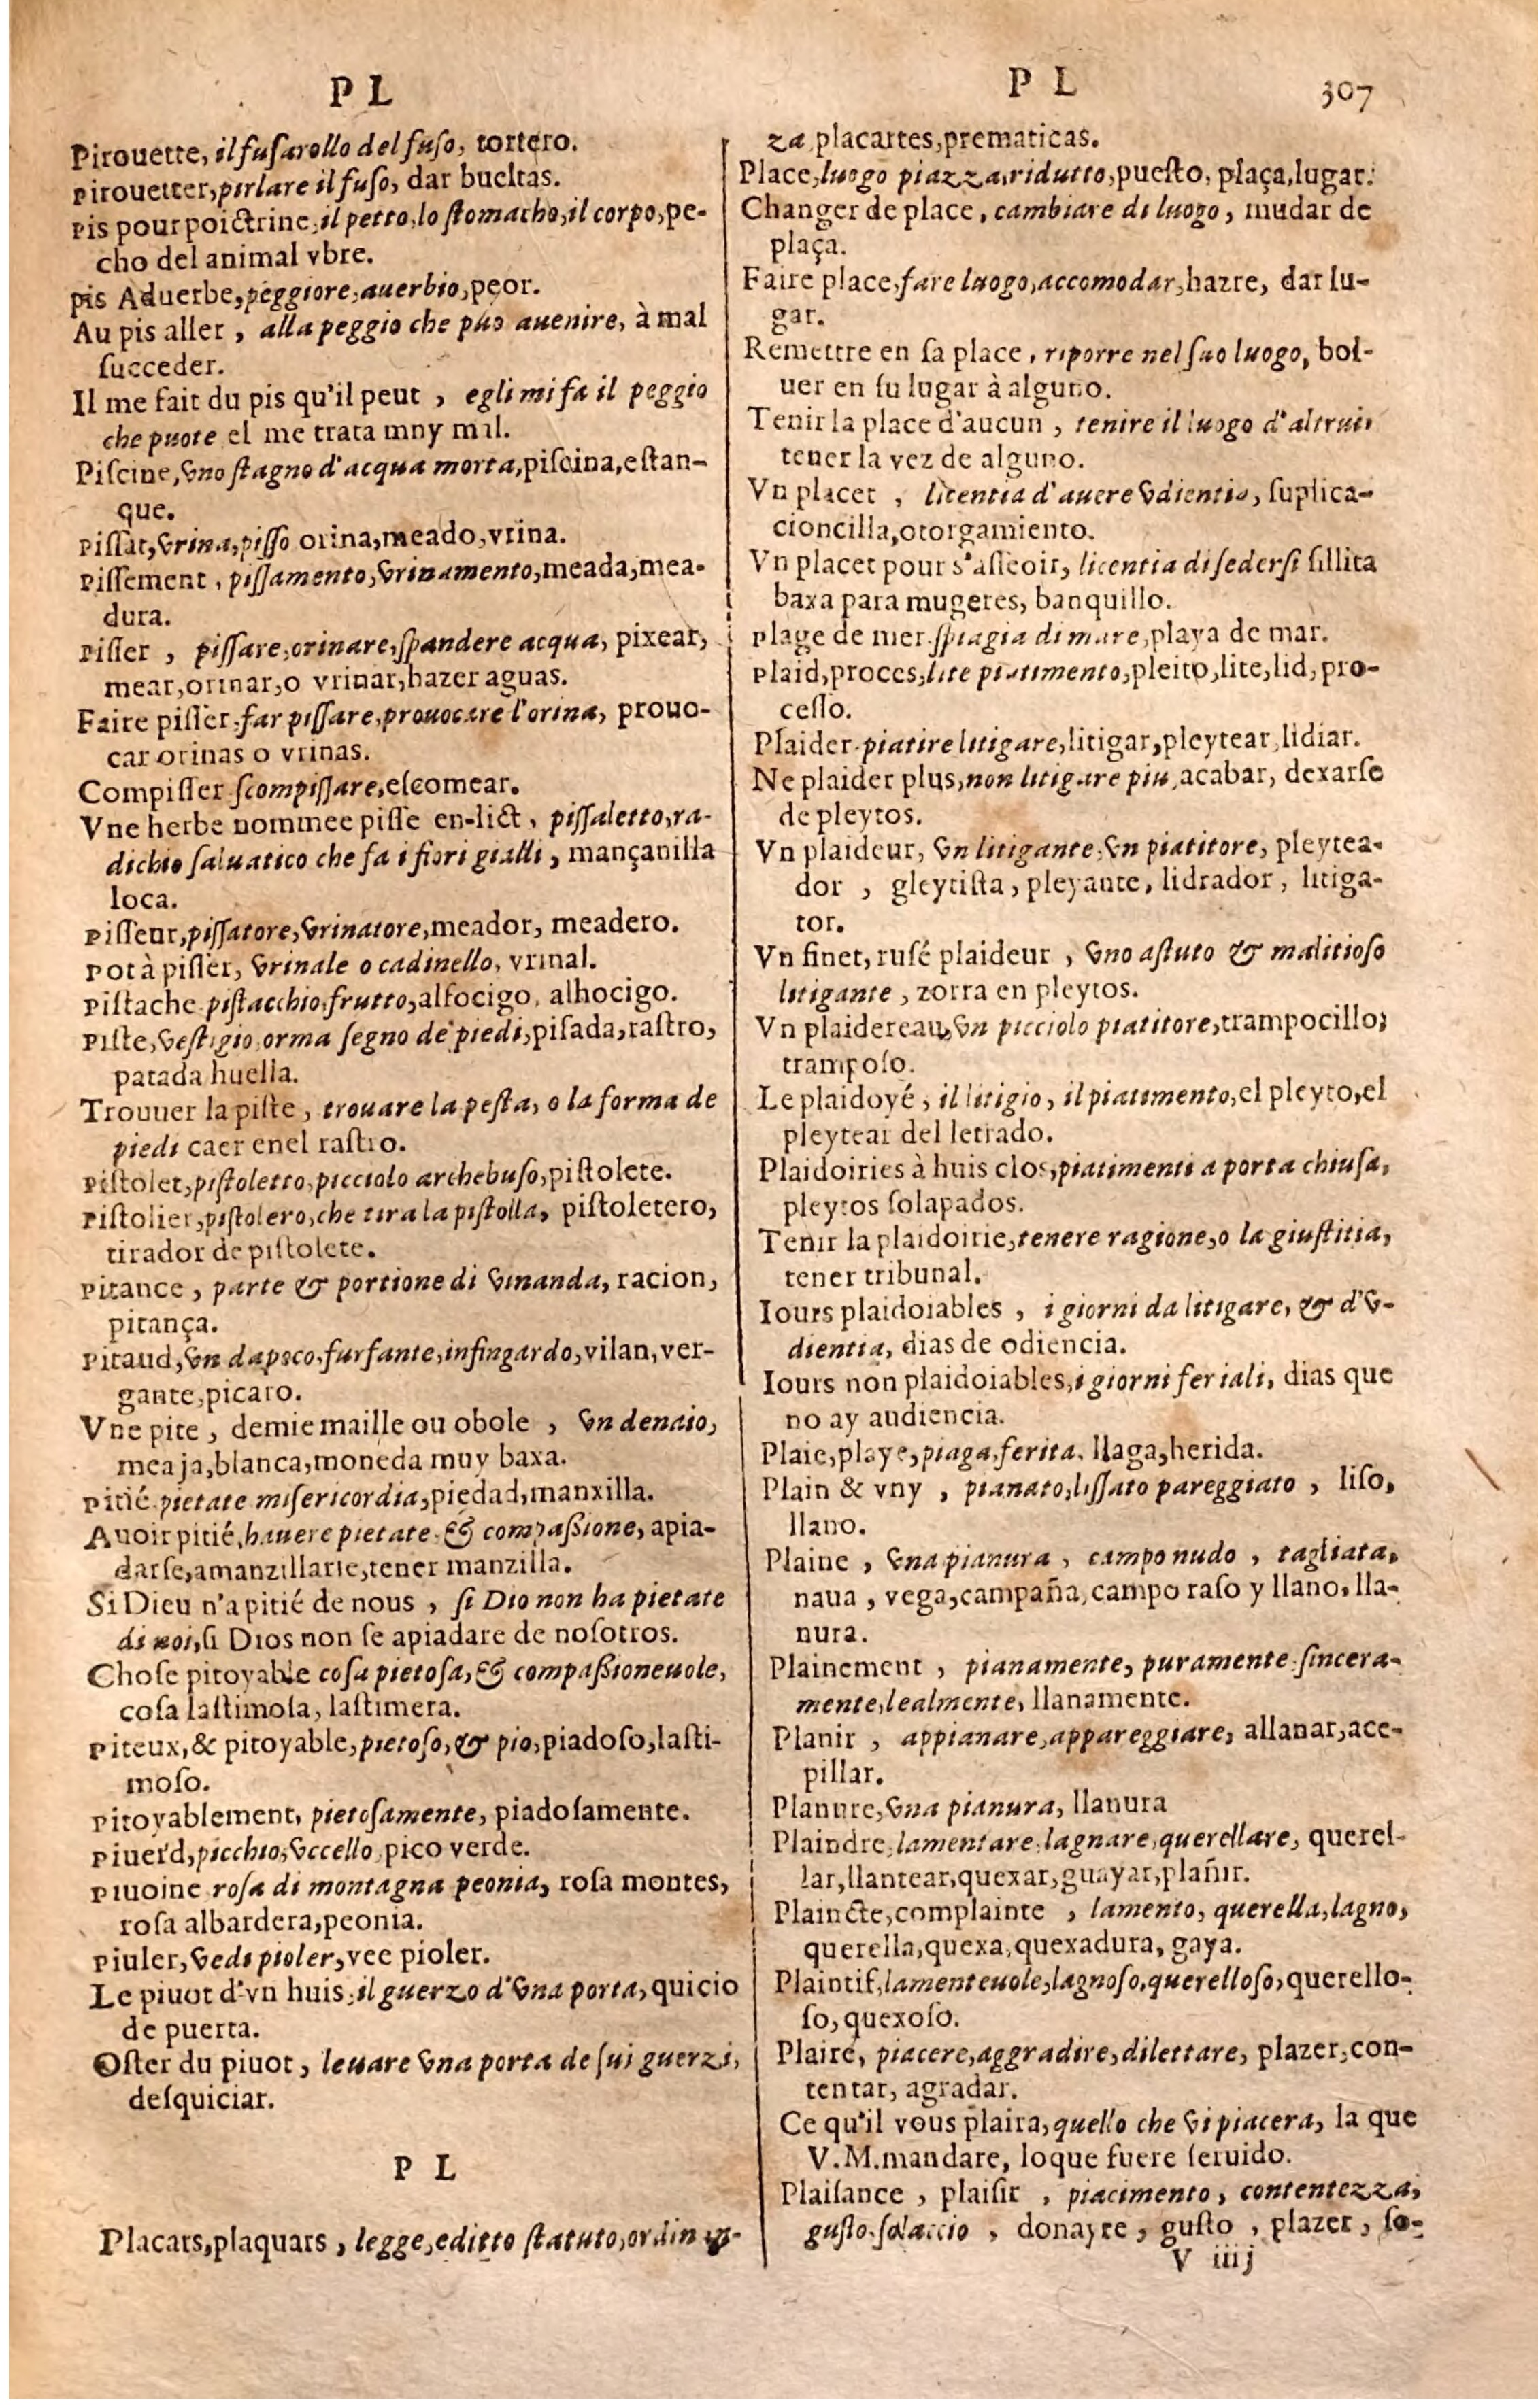 P L
Pirouette, il fusarollo del fuso, tortero.
Pirouetter, pirlare il fuso, dar bueltas.
Pis pour poictrine, il petto, lo stomacho, il corpo, pe-
cho del animal vbre.
Pis Aduerbe, peggiore, auerbio, peor.
Au pis aller, alla peggio che puo auenire, à mal
succeder.
Il me fait du pis qu'il peut, egli mi fa il peggio
che puote el me trata mny mal.
Piscine, vno stagno d'acqua morta, piscina, estan-
que.
Pissat, vrina, pisso orina, meado, vrina.
Pissement, pissamento, vrinamento, meada, mea-
dura.
Pisser, pissare, orinare, spandere acqua, pixear,
mear, orinar, o vrinar, hazer aguas.
Faire pisser, far pissare, prouocare l'orina, prouo-
car orinas o vrinas.
Compisser scompissare, escomear.
Vne herbe nommee pisse en-lict, pissaletto, ra-
dichio saluatico che fa i fiori gialli, mançanilla
loca.
Pisseur, pissatore, vrinatore, meador, meadero.
Pot à pisser, vrinale o cadinello, vrinal.
Pistache pistacchio, frutto, alfocigo, alhocigo.
Piste, vestigio, orma segno de piedi, pisada, rastro,
patada huella.
Trouuer la piste, trouare la pesta, o la forma de
piedi caer enel rastro.
Pistolet, pistoletto, picciolo archebuso, pistolete.
Pistolier, pistolero, che tira la pistolla, pistoletero,
tirador de pistolete.
Pitance, parte & portione di viuanda, racion,
pitança.
Pitaud, vn dapoco, furfante, infingardo, vilan, ver-
gante, picaro.
Vne pite, demie maille ou obole, vn denaio,
meaja, blanca, moneda muy baxa.
Pitié pietate misericordia, piedad, manxilla.
Auoir pitié, hauere pietate & compaßione, apia-
darse, amanzillarse, tener manzilla.
Si Dieu n'a pitié de nous, si Dio non ha pietate
di noi, si Dios non se apiadare de nosotros.
Chose pitoyable cosa pietosa, & compaßioneuole,
cosa lastimosa, lastimera.
Piteux, & pitoyable, pietoso, & pio, piadoso, lasti-
moso.
Pitoyablement, pietosamente, piadosamente.
Piuerd, picchio, vccello, pico verde.
Piuoine rosa di montagna peonia, rosa montes,
rosa albardera, peonia.
Piuler, vedi pioler, vee pioler.
Le piuot d'vn huis, il guerzo d'vna porta, quicio
de puerta.
Oster du piuot, leuare vna porta de sui guerzi,
desquiciar.
P L
Placats, plaquars, legge, editto statuto, ordinan-
P L 307
za placartes, prematicas.
Place, luogo piazza, ridutto, puesto, plaça, lugar.
Changer de place, cambiare di luogo, mudar de
plaça.
Faire place, fare luogo, accomodar, hazre, dar lu-
gar.
Remettre en sa place, riporre nel suo luogo, bol-
uer en su lugar à alguno.
Tenir la place d'aucun, tenire il luogo d'altrui,
tener la vez de alguno.
Vn placet, licentia d'auere vdientia, suplica-
cioncilla, otorgamiento.
Vn placet pour s'asseoir, licentia di sedersi sillita
baxa para mugeres, banquillo.
Plage de mer spiagia di mare, playa de mar.
Plaid, proces, lite piatimento, pleito, lite, lid, pro-
cesso.
Plaider piatire litigare, litigar, pleytear, lidiar.
Ne plaider plus, non litigare piu, acabar, dexarse
de pleytos.
Vn plaideur, vn litigante, vn piatitore, pleytea-
dor, gleytista, pleyante, lidrador, litiga-
tor.
Vn finet, rusé plaideur, vno astuto & malitioso
litigante, zorra en pleytos.
Vn plaidereau, vn picciolo piatitore, trampocillo,
tramposo.
Le plaidoyé, il litigio, il piatimento, el pleyto, el
pleytear del letrado.
Plaidoiries à huis clos, piatimenti a porta chiusa,
pleytos solapados.
Tenir la plaidoirie, tenere ragione, o la giustitia,
tener tribunal.
Iours plaidoiables, i giorni da litigare, & d'v-
dientia, dias de odiencia.
Iours non plaidoiables, i giorni feriali, dias que
no ay audiencia.
Plaie, playe, piaga, ferita, llaga, herida.
Plain & vny, pianato, lissato pareggiato, liso,
llano.
Plaine, vna pianura, campo nudo, tagliata,
naua, vega, campaña, campo raso y llano, lla-
nura.
Plainement, pianamente, puramente sincera-
mente, lealmente, llanamente.
Planir, appianare, appareggiare, allanar, ace-
pillar.
Planure, vna pianura, llanura
Plaindre, lamentare, lagnare, querellare, querel-
lar, llantear, quexar, guayar, plañir.
Plaincte, complainte, lamento, querella, lagno,
querella, quexa, quexadura, gaya.
Plaintif, lamenteuole, lagnoso, querelloso, querello-
so, quexoso.
Plaire, piacere, aggradire, dilettare, plazer, con-
tentar, agradar.
Ce qu'il vous plaira, quello che vi piacera, la que
V. M. mandare, loque fuere seruido.
Plaisance, plaisir, piacimento, contentezza,
gusto, solaccio, donayre, gusto, plazer, so-
V iiij